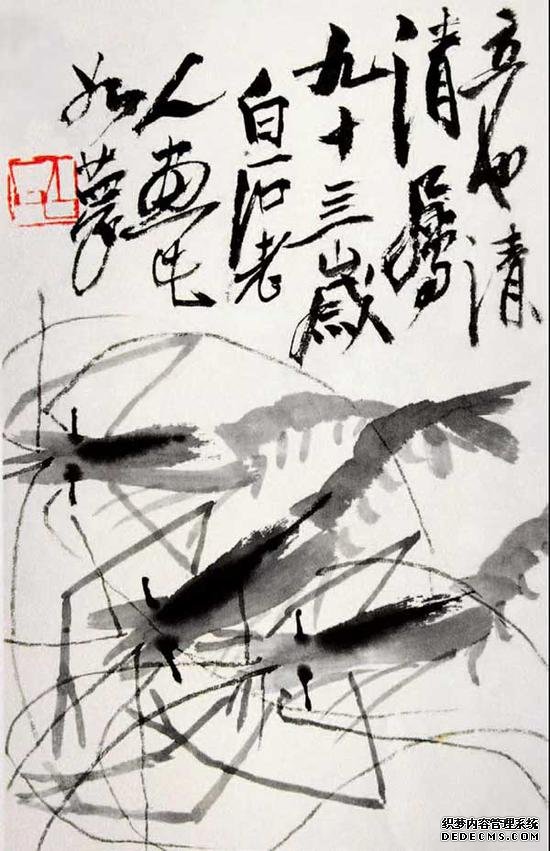 清
清屬
九十三歲
白石老
人畫也
如夢
织梦内容管理系统
DEDECMS.COM